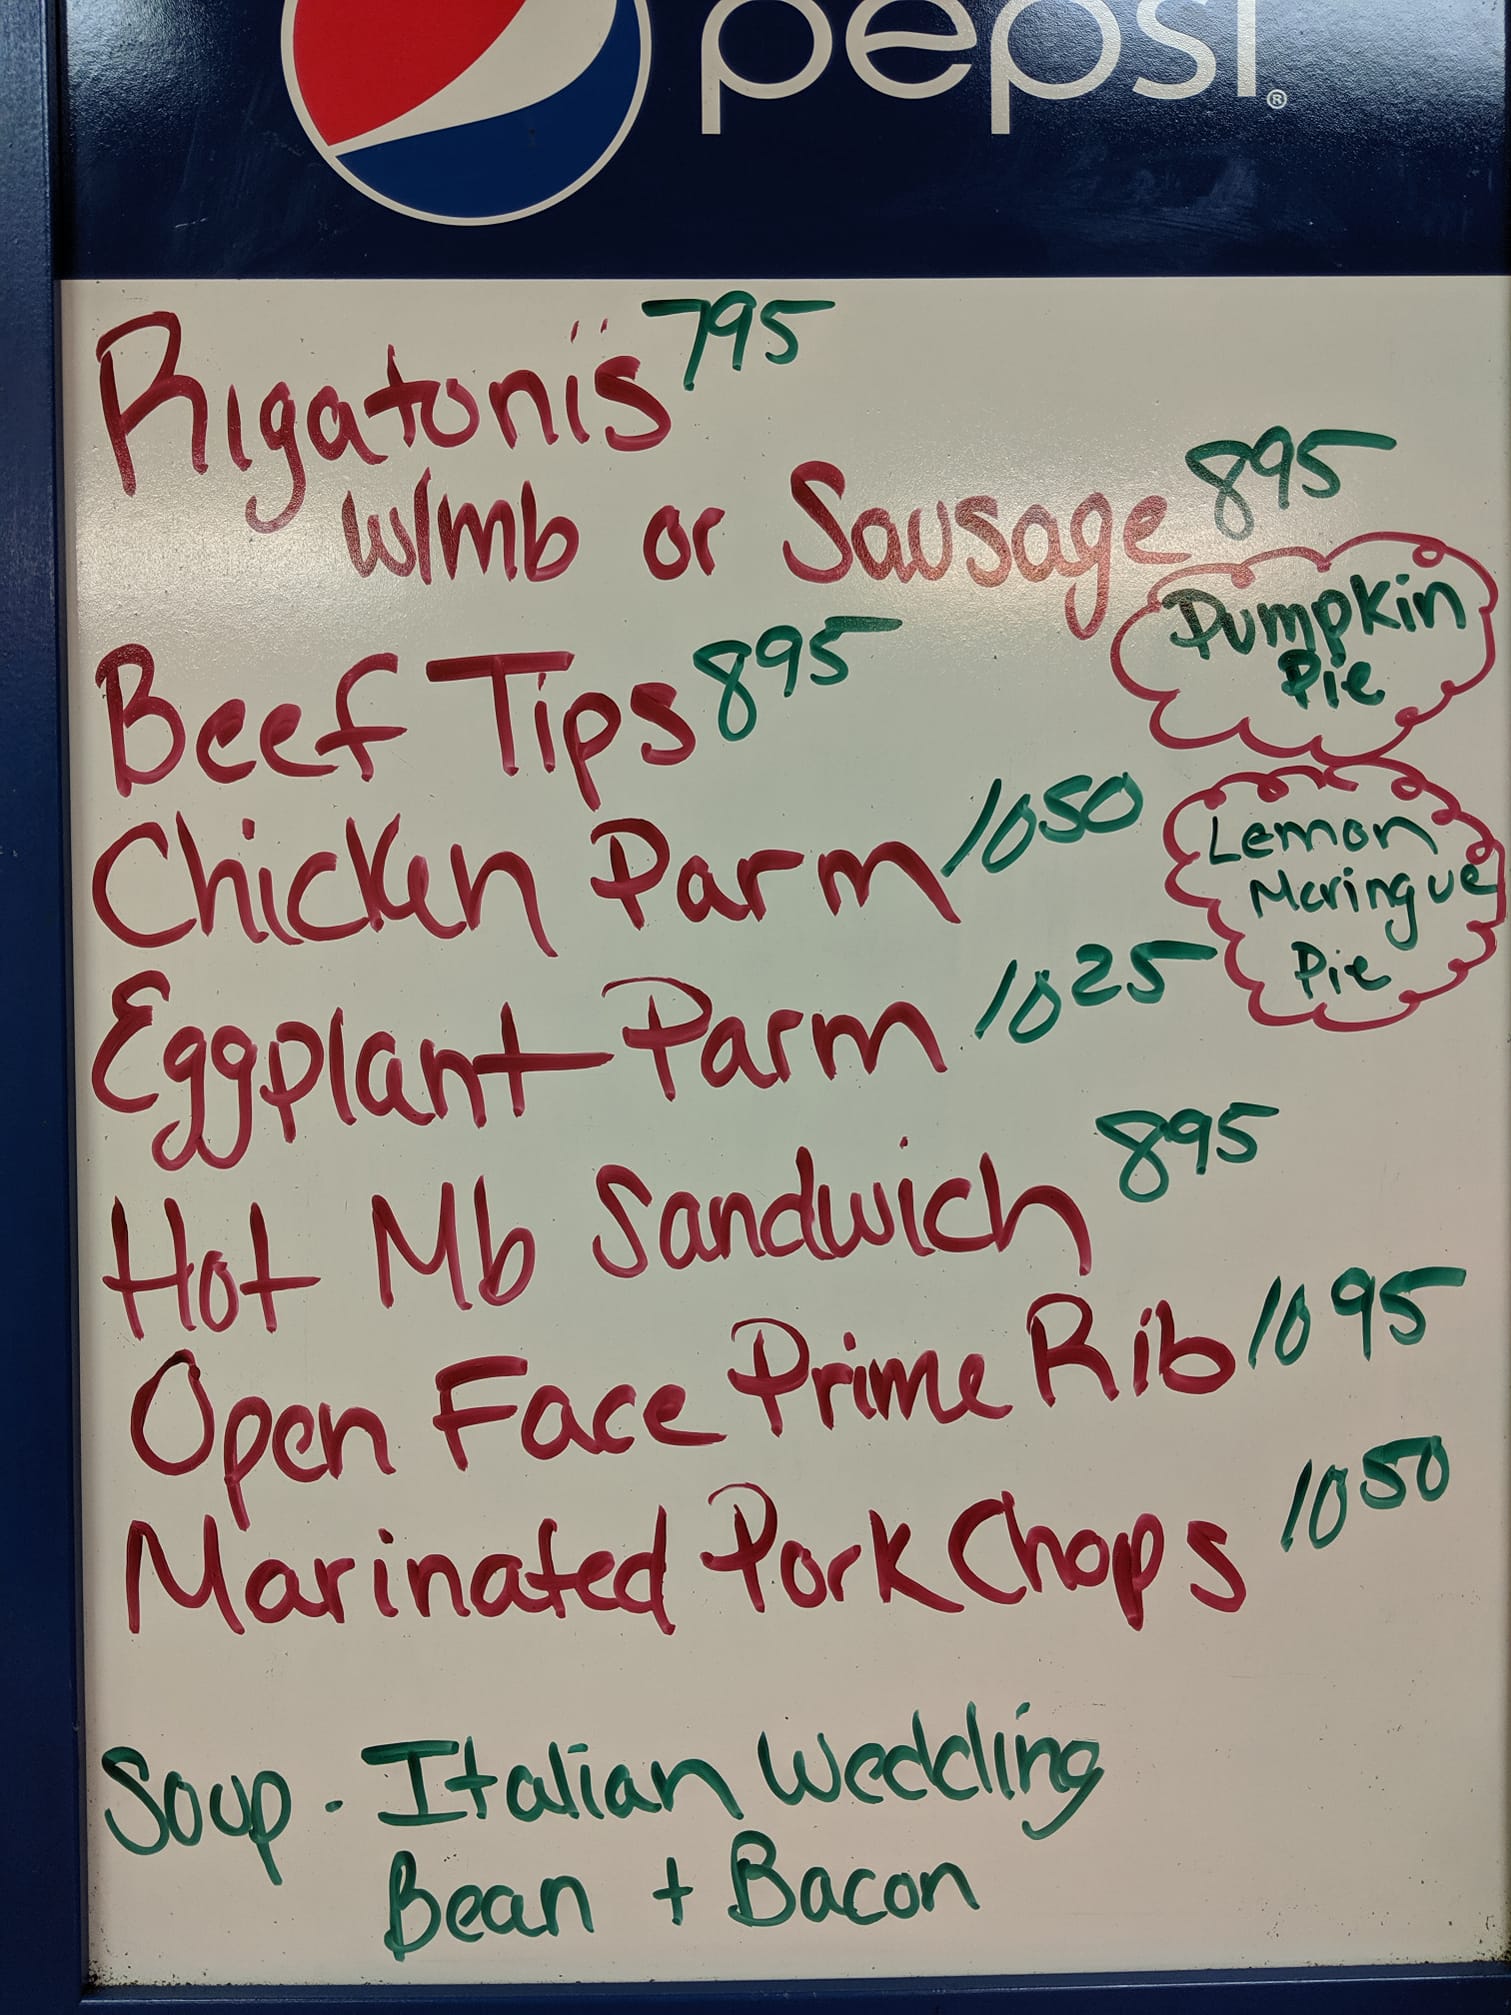 pepsi®
Rigatonis 795
w/mb or Sausage 895
Pumpkin
Pie
Beef Tips 895
Chicken Parm 1050
Lemon
Meringue
Pie
Eggplant Parm 1025
Hot Mb Sandwich 895
Open Face Prime Rib 1095
Marinated Pork Chops 1050
Soup. Italian Wedding
Bean + Bacon